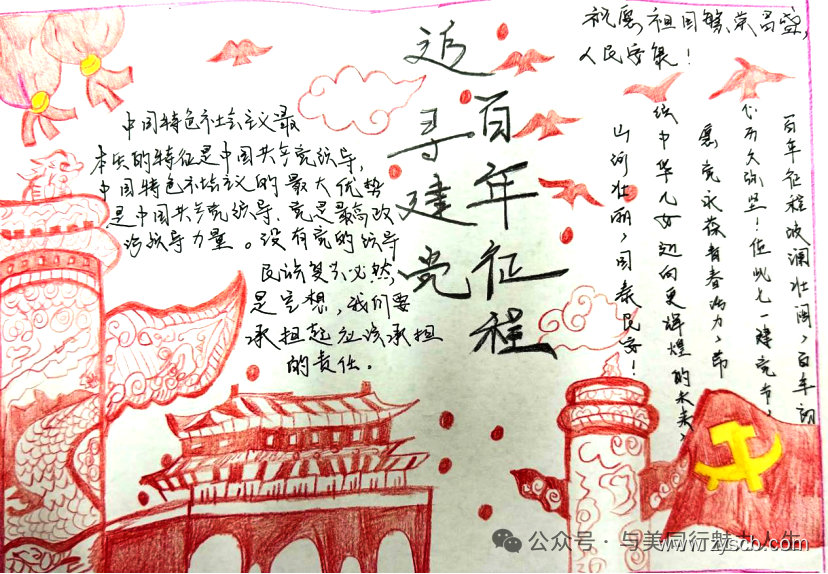 祝愿祖国繁荣昌盛，
人民安康！
追寻建党
百年征程
中国特色社会主义最
本质的特征是中国共产党领导，
中国特色社会主义的最大优势
是中国共产党领导，党是最高政
治领导力量。没有党的领导
民族复兴必然
是空想，我们要
承担起应该承担
的责任。
百年征程波澜壮阔，百年初
心历久弥坚！值此七一建党节，
愿党永葆青春活力，带
领中华儿女迈向更辉煌的未来，
山河壮丽，国泰民安！
公众号·与美同行魅力人生
www.zyscb.com